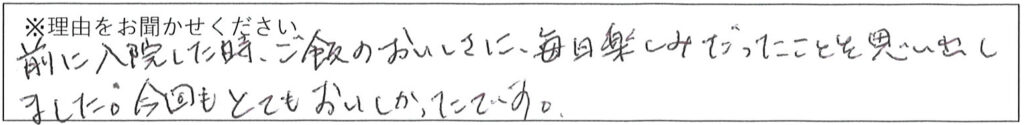 ※理由をお聞かせください
前に入院した時、ご飯のおいしさに、毎日楽しみだったことを思い出し
ました。今回もとてもおいしかったです。